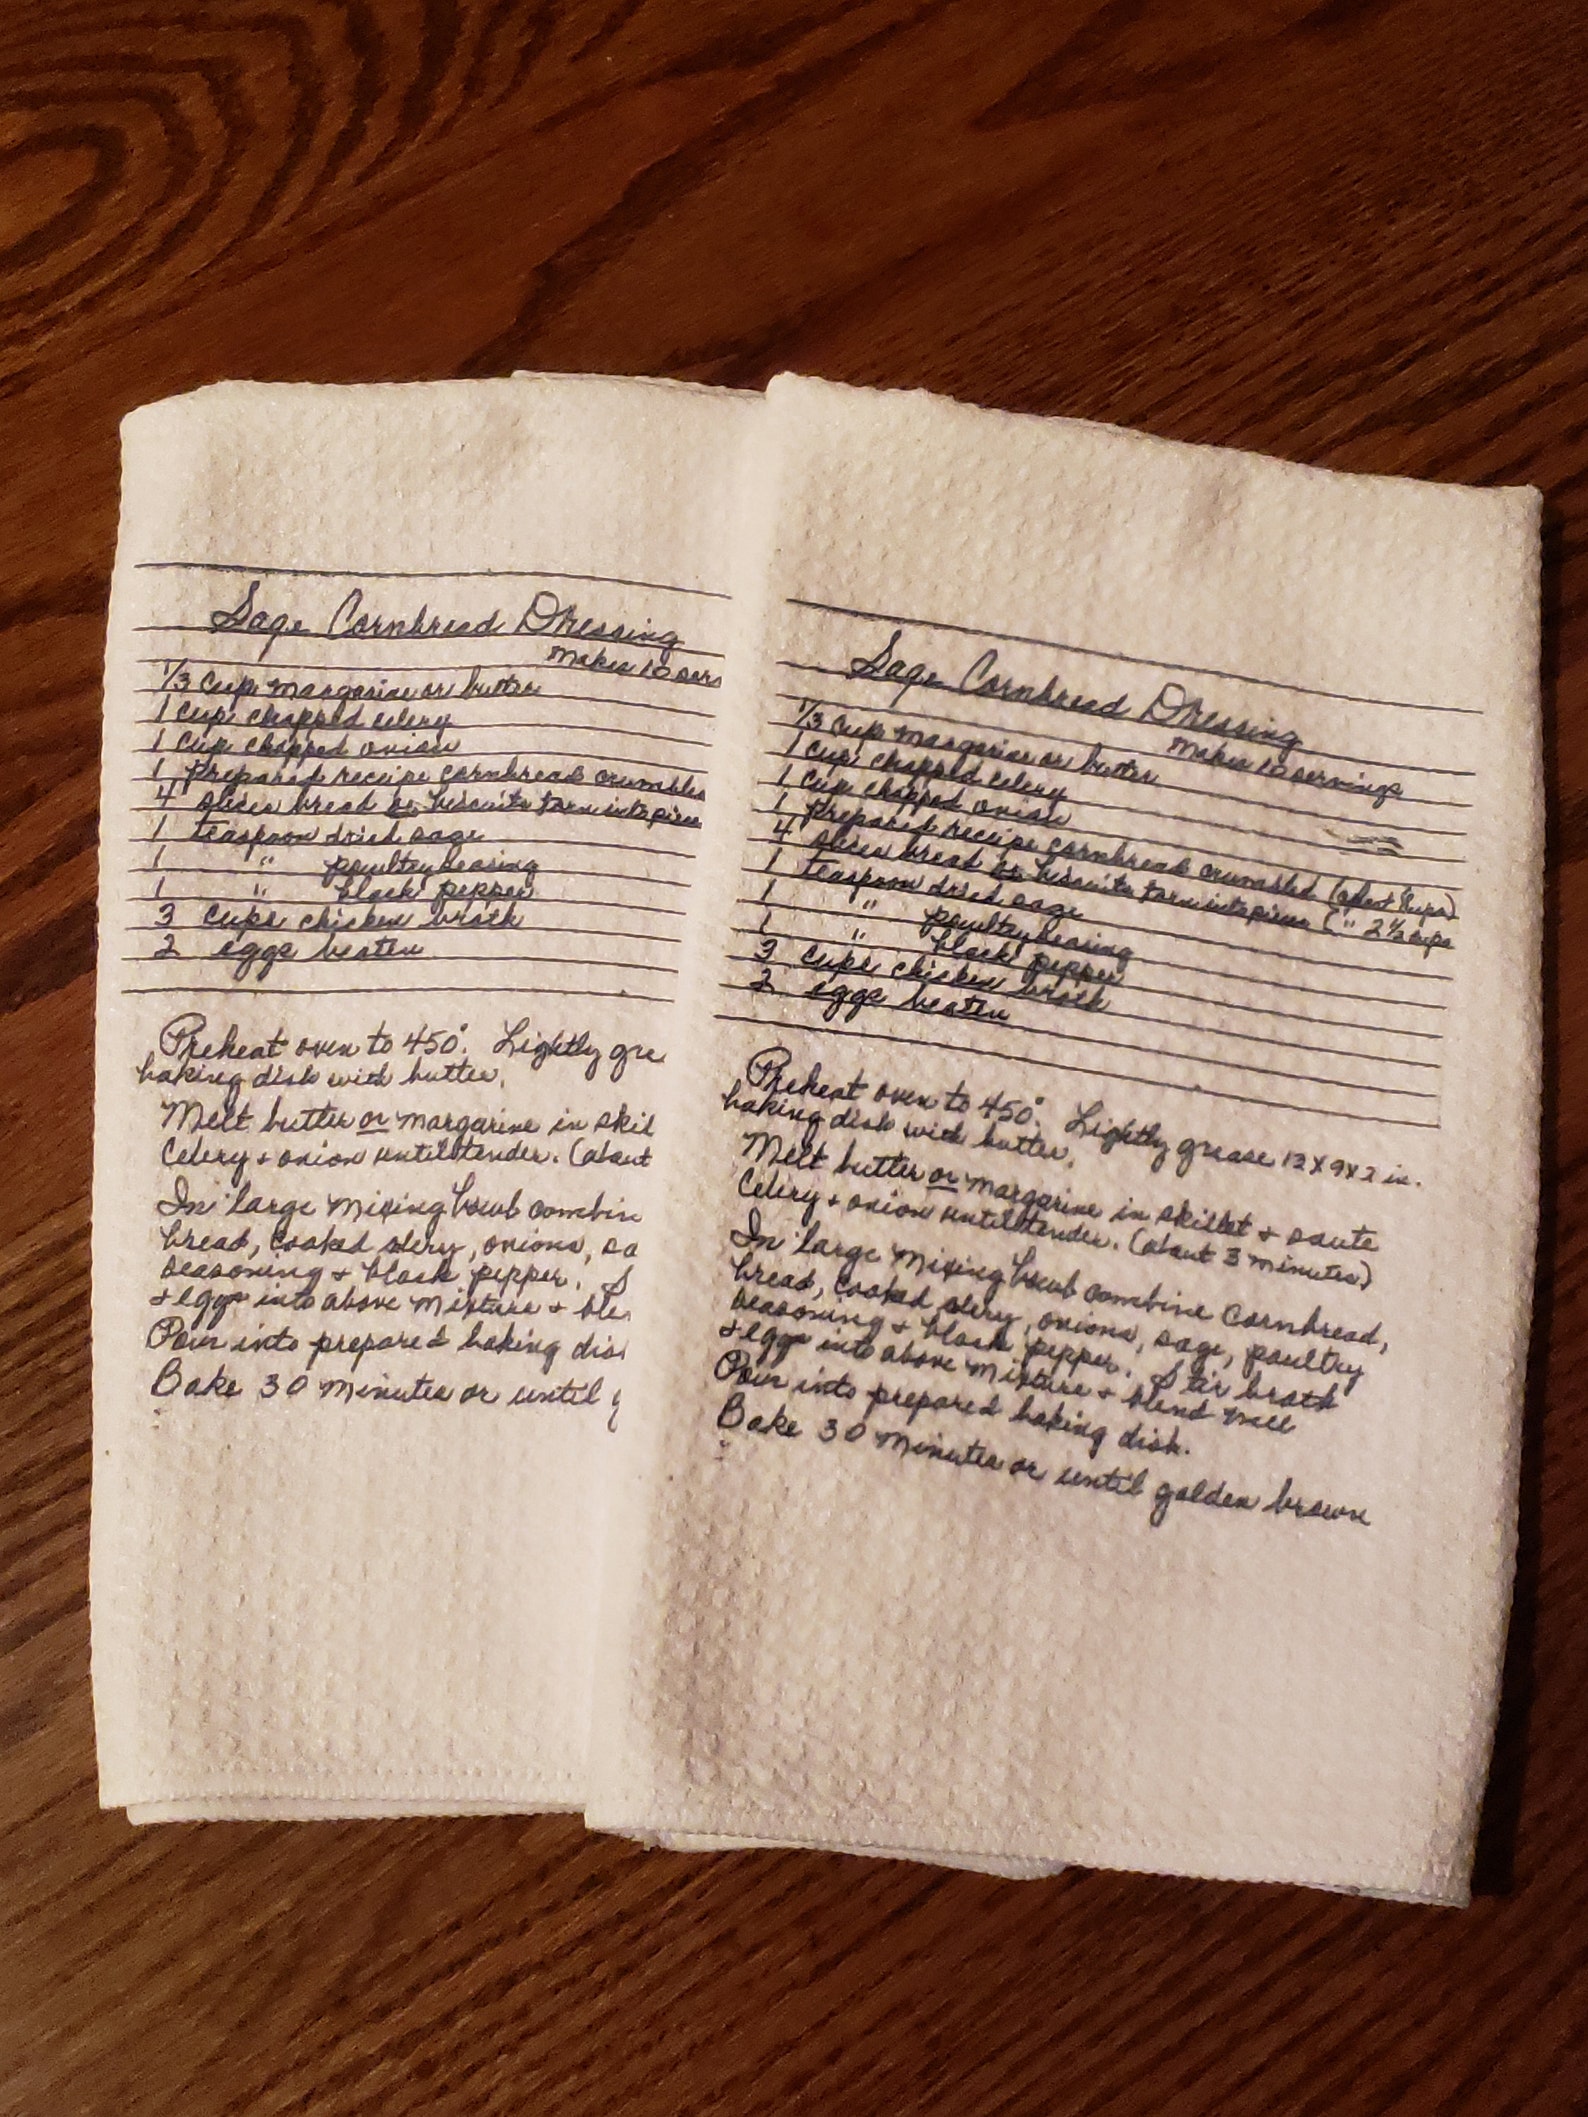 Sage Cornbread Dressing
Makes 10 serv
1/3 cup margarine or butter
1 cup chopped celery
1 cup chopped onion
1 prepared recipe cornbread crumbled
4 slices bread or biscuits torn into pieces
1 teaspoon dried sage
1 " poultry seasing
1 " black pepper
3 cups chicken broth
2 eggs beaten
Preheat oven to 450°. Lightly gre
baking dish with butter.
Melt butter or margarine in skil
Celery + onion until tender. (about
In large mixing bowl combin
bread, cooked celery, onions, sa
seasoning + black pepper. S
+ eggs into above mixture + blen
Pour into prepared baking dis
Bake 30 minutes or until g
Sage Cornbread Dressing
Makes 10 servings
1/3 cup margarine or butter
1 cup chopped celery
1 cup chopped onion
1 prepared recipe cornbread crumbled (about 8 cups)
4 slices bread or biscuits torn into pieces (" 2 1/2 cups
1 teaspoon dried sage
1 " poultry seasing
1 " black pepper
3 cups chicken broth
2 eggs beaten
Preheat oven to 450°. Lightly grease 13 x 9 x 2 in.
baking dish with butter.
Melt butter or margarine in skillet + saute
Celery + onion until tender. (about 3 minutes)
In large mixing bowl combine cornbread,
bread, cooked celery, onions, sage, poultry
seasoning + black pepper. Stir broth
+ eggs into above mixture + blend well
Pour into prepared baking dish.
Bake 30 minutes or until golden brown